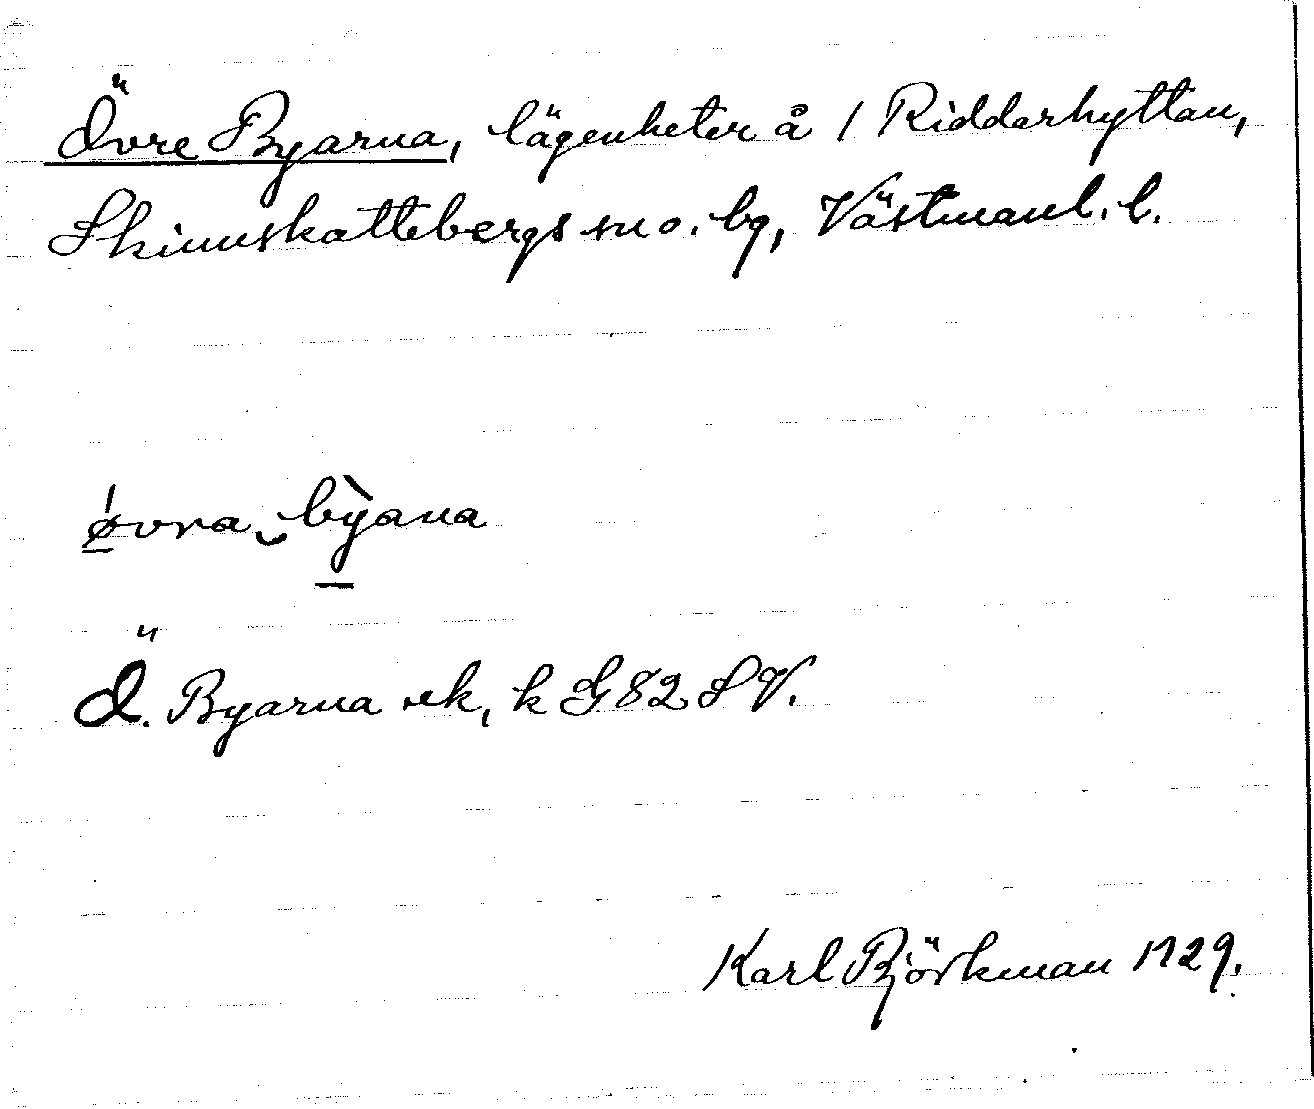 Övre Byarna, lägenheter å 1 Riddarhyttan,
Skinnskattebergs sn o. bg, Västmanl. l.
ǿvra‿bỳana
Ö. Byarna ek, k G 82 SV.
Karl Björkman 1929.